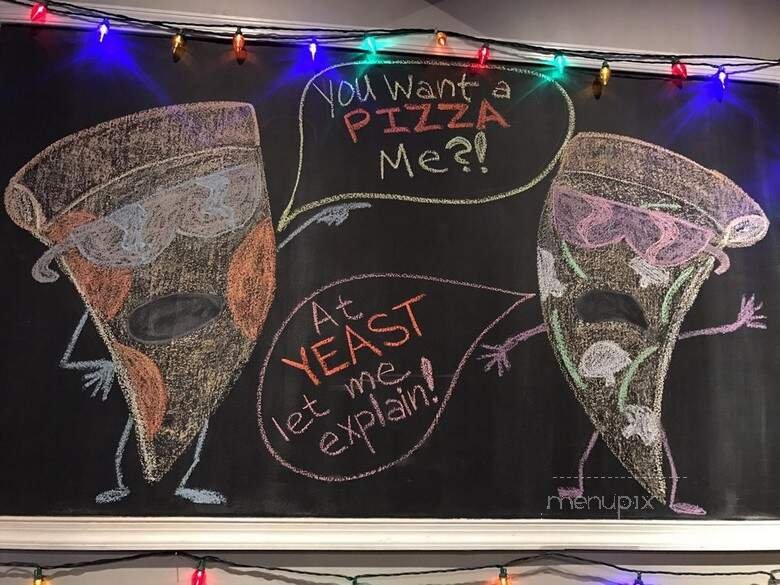 You Want a
PIZZA
Me?!
At
YEAST
let me
explain!
menupix